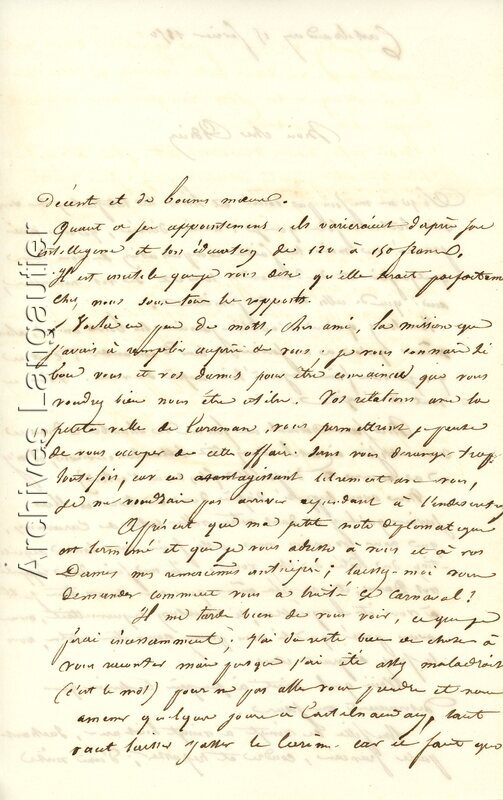 décent et de bonnes mœurs.
Quant à ses appointemens, ils varieraient d'après son
intelligence et son éducation de 120 à 150 francs.
Il est inutile que je vous dise qu'elle serait parfaitem
chez nous sous tous les rapports.
Voilà en peu de mots, cher ami, la mission que
j'avais à remplir auprès de vous, je vous connais si
bon vous et vos dames pour être convaincu que vous
voudrez bien nous être utiles. Vos relations avec la
petite ville de Caraman, vous permettront je pense
de vous occuper de cette affaire sans vous déranger trop
toutefois, car en agissant librement avec vous,
je ne voudrais pas arriver cependant à l'indiscret
Après que ma petite note diplomatique
est terminée et que je vous adresse à vous et à vos
Dames mes remerciemens anticipés; laissez-moi vous
demander comment vous a traité ce carnaval?
Il me tarde bien de vous voir, ce que je
ferai incessamment; j'ai du reste bien de choses à
vous raconter mais puisque j'ai été assez maladroit
(c'est le mot) pour ne pas aller vous prendre et vous
amener quelques jours à Castelnaudary, faut
vaut laisser passer le Carême. car il faut que
Archives Langautier